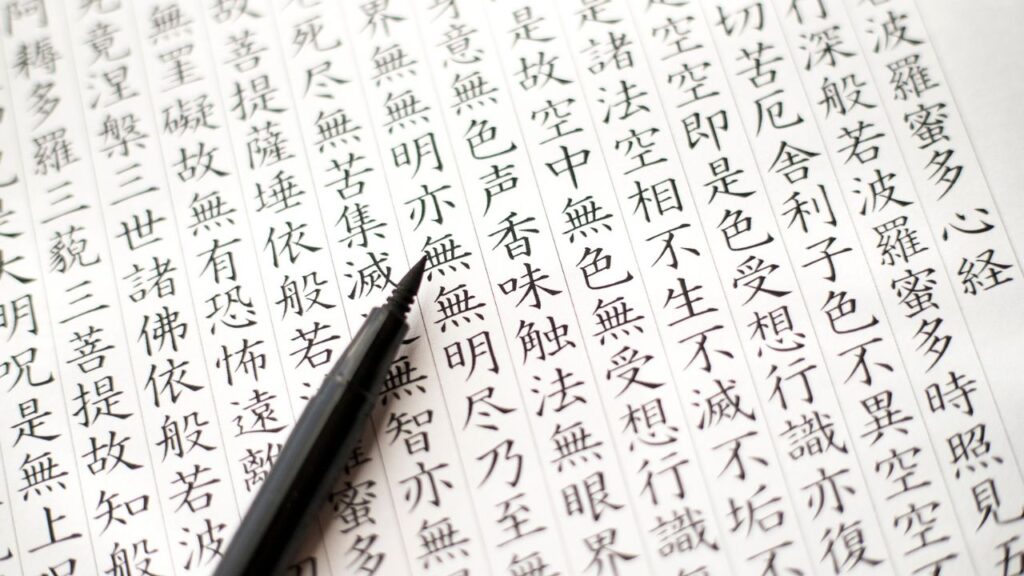 波羅蜜多心経
行深般若波羅蜜多時照見五
切苦厄舎利子色不異空空
是空空即是色受想行識亦復
是諸法空相不生不滅不垢不
是故空中無色無受想行識無
身意無色声香味触法無眼界
界無無明亦無無明尽乃至無
死尽無苦集滅無智亦無
故菩提薩埵依般若蜜多
無罣礙故無有恐怖遠離
竟涅槃三世諸佛依般若波
阿耨多羅三藐三菩提故知般
大明呪是無上呪